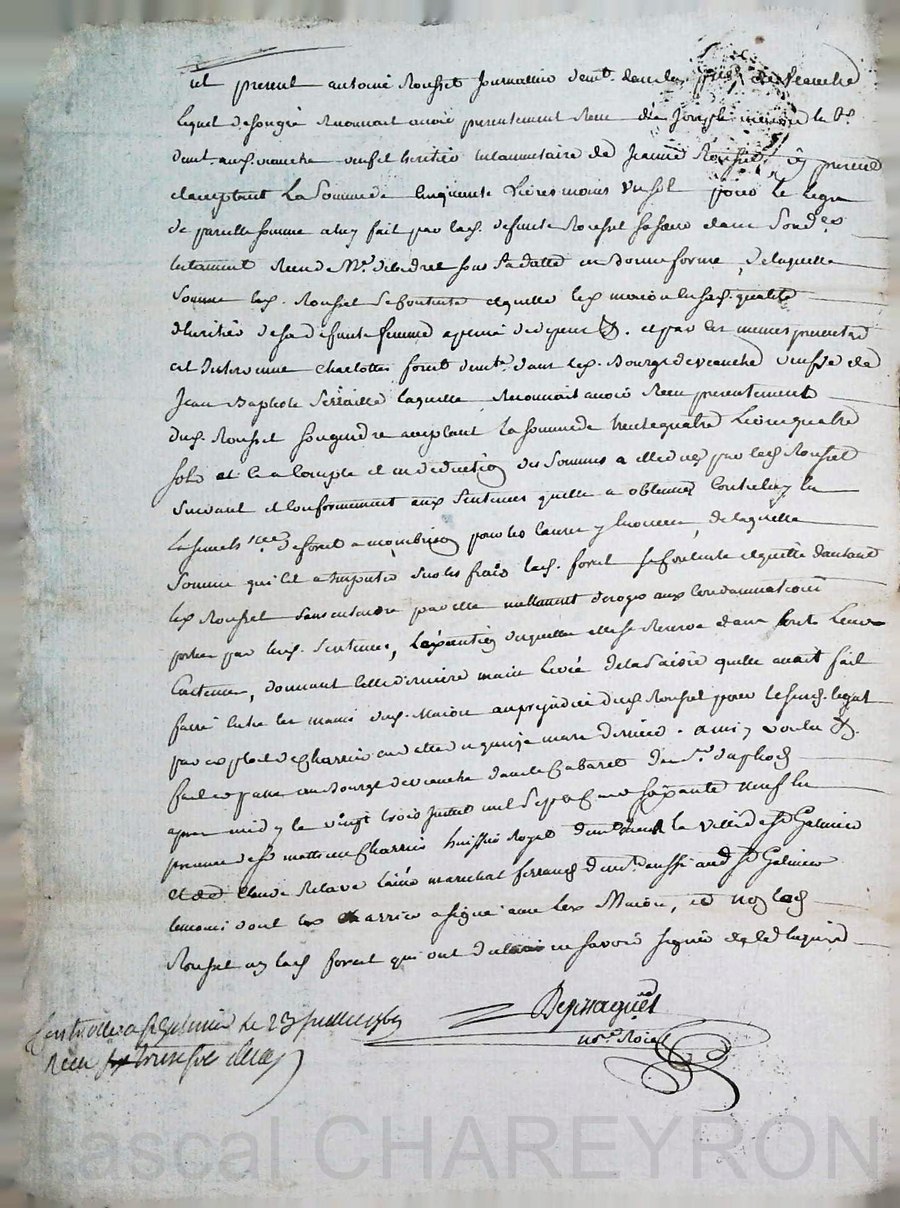 est present antoine Rousset Journallier demt. dans la de Veauche
lequel de son gré Reconnait avoir presentement Reçu de Joseph le Br.
demt. aud. veauche veuf et heritier testamentaire de Jeanne Rousset, icy present
et acceptant La Somme de Cinquante Livres moins Un sol pour le legat
de pareille somme a luy fait par lad. defunte Rousset sa sœur dans Son der.
testament Reçu de Me. sous Sa datte en bonne forme, de laquelle
somme led. Rousset se contente et quitte led. maion en sad. qualité
d'heritier de sa defunte femme a peine de depens &. et par ces memes presentes
est Intervenue Charlotte foret demte. dans led. Bourg de veauche veufve de
Jean Baptiste laquelle Reconnait avoir Reçu presentement
dud. Rousset son gendre acceptant la somme de trente quatre Livres quatre
sols et ce a Compte et en deduction des Sommes a elle dues par led. Rousset
suivant et Conformement aux Sentences quelle a obtenues Contre luy en
la de foret a montbrison pour les causes y enoncées, de laquelle
Somme qu'il a Imputée sur les frais lad. foret se contente et quitte d'autant
led. Rousset sans entendre par elle nullement deroger aux Condamnations
portées par lesd. Sentences, L'execution desquelles elle se Reserve dans toute Leur
Contenue, donnant cette derniere main Levée de la Saisie quelle avait fait
faire entre les mains dud. Maion au prejudice dud. Rousset pour le susd. legat
par exploit de Charrin en datte du quinze mars dernier. ainsi voulu &.
fait et passé au Bourg de veauche dans le Cabaret du Sr.
apres midy le vingt trois Juillet mil Sept Cent soixante neuf En
presence de Sr. mathieu Charrin huissier Royal demt. en la ville de St. Galmier
et de Claude Relave L'ainé marechal ferrand demt. aussi aud. St Galmier
temoins dont led. Charrin a signé avec led. Maion, et non led.
Rousset ny lad. foret qui ont declaré ne savoir signer de ce Enquis
Controllé a St Galmier le 23 juillet 1769
Reçu treize sols
not. Roial
Pascal CHAREYRON